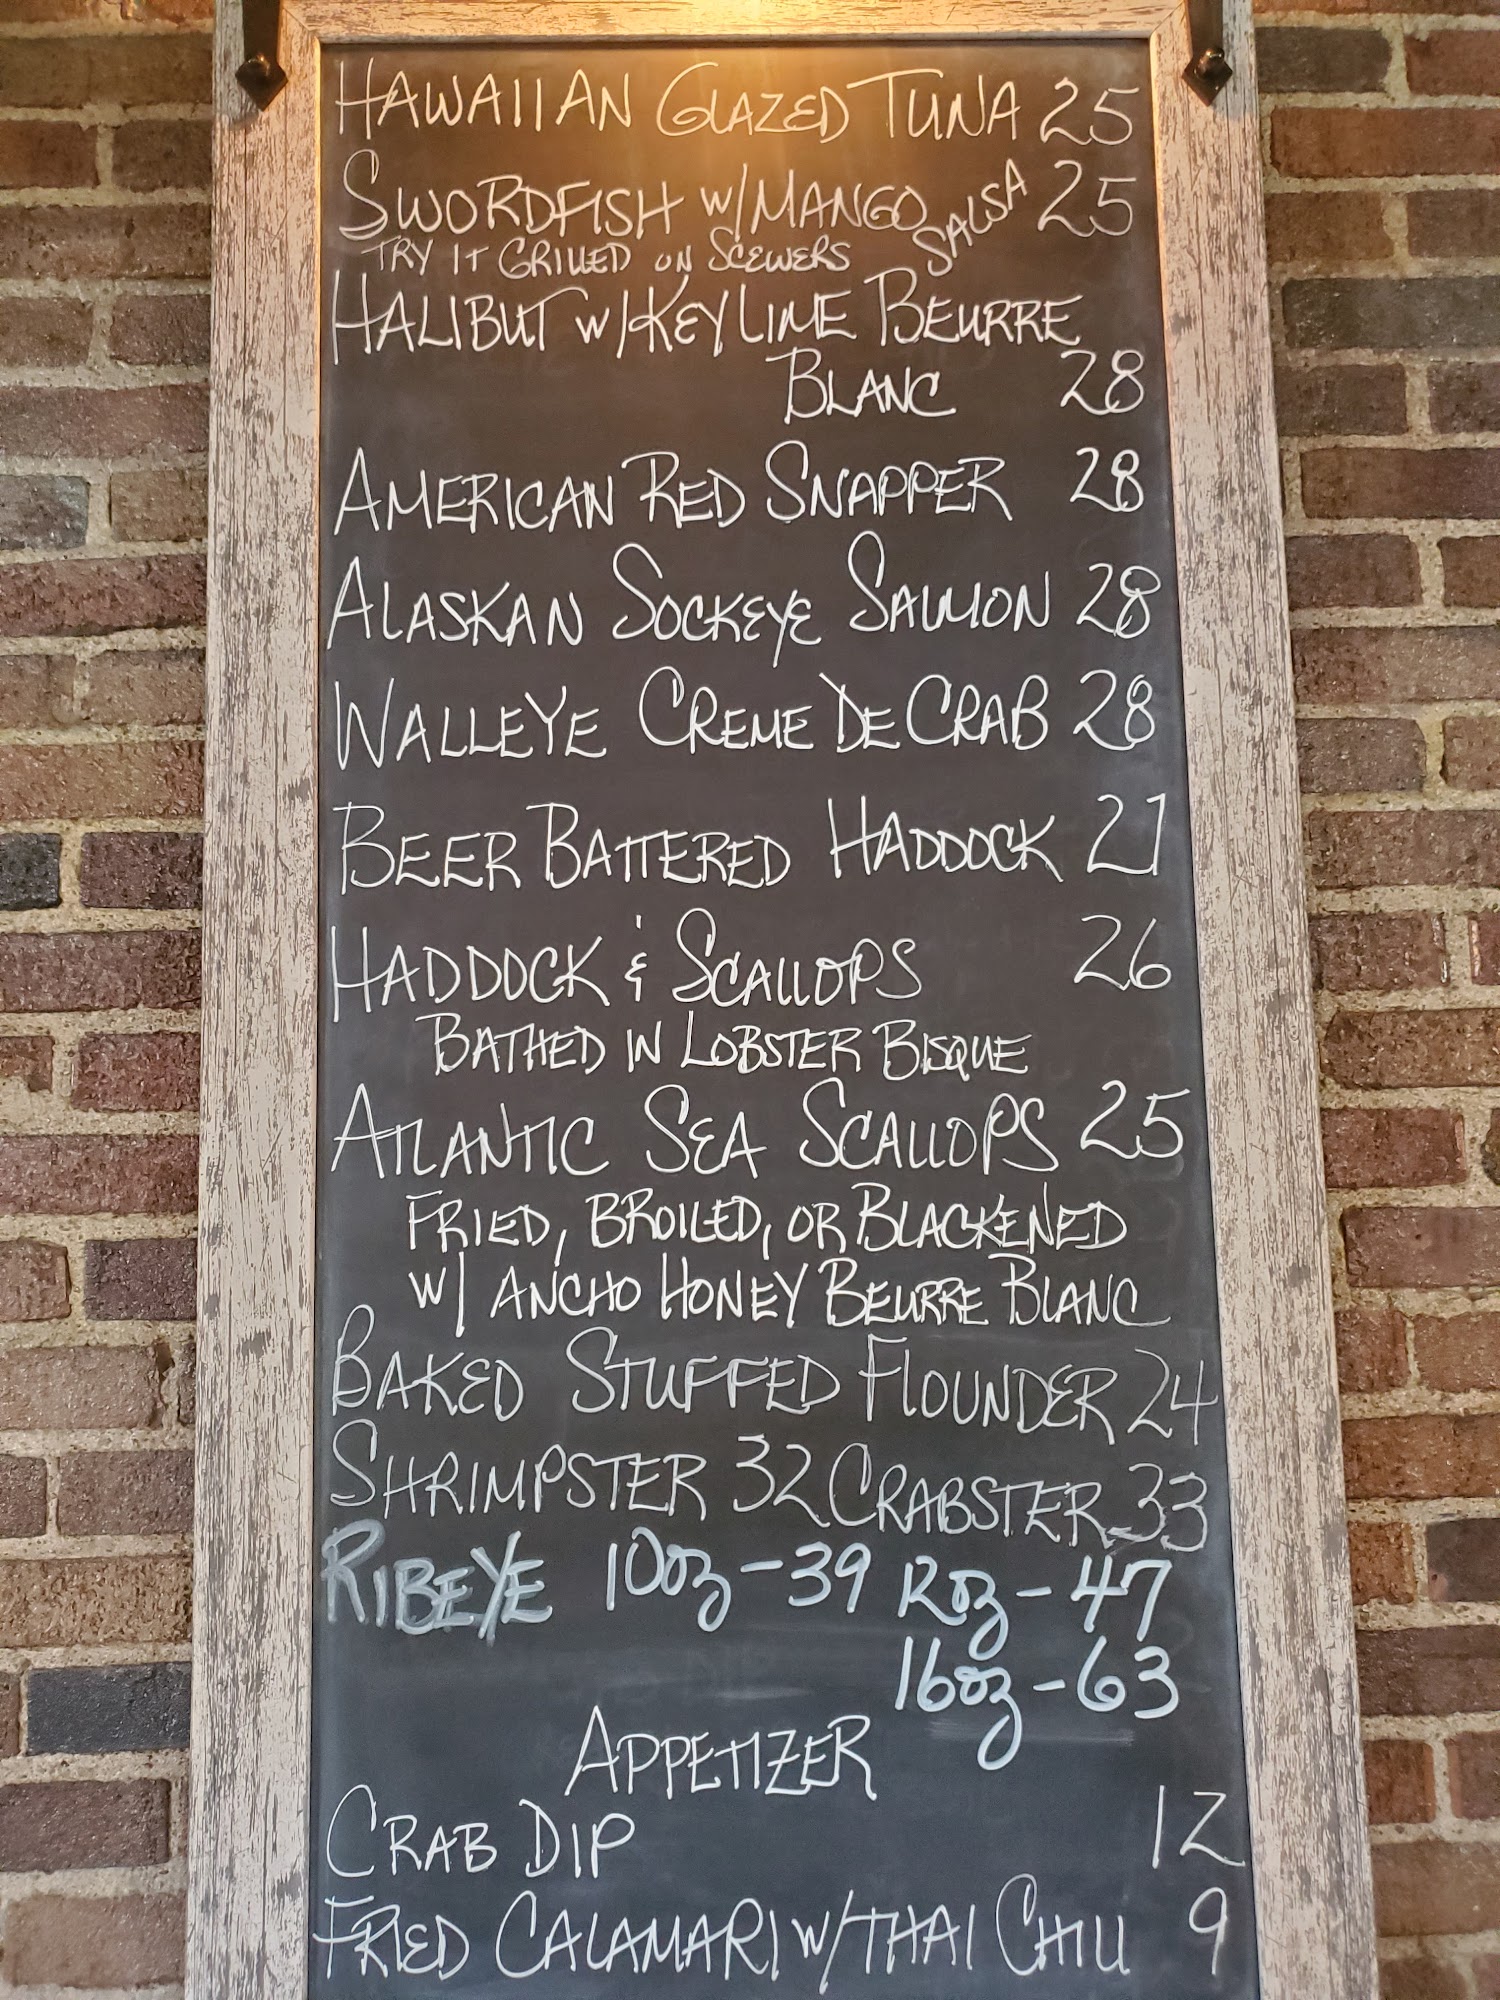 HAWAIIAN GLAZED TUNA 25
SWORDFISH W/MANGO SALSA 25
TRY IT GRILLED ON SCEWERS
HALIBUT W/KEY LIME BEURRE
BLANC 28
AMERICAN RED SNAPPER 28
ALASKAN SOCKEYE SALMON 28
WALLEYE CREME DE CRAB 28
BEER BATTERED HADDOCK 21
HADDOCK & SCALLOPS 26
BATHED IN LOBSTER BISQUE
ATLANTIC SEA SCALLOPS 25
FRIED, BROILED, OR BLACKENED
W/ ANCHO HONEY BEURRE BLANC
BAKED STUFFED FLOUNDER 24
SHRIMPSTER 32 CRABSTER 33
RIBEYE 10oz-39 12oz-47
16oz-63
APPETIZER
CRAB DIP 12
FRIED CALAMARI W/THAI CHILI 9